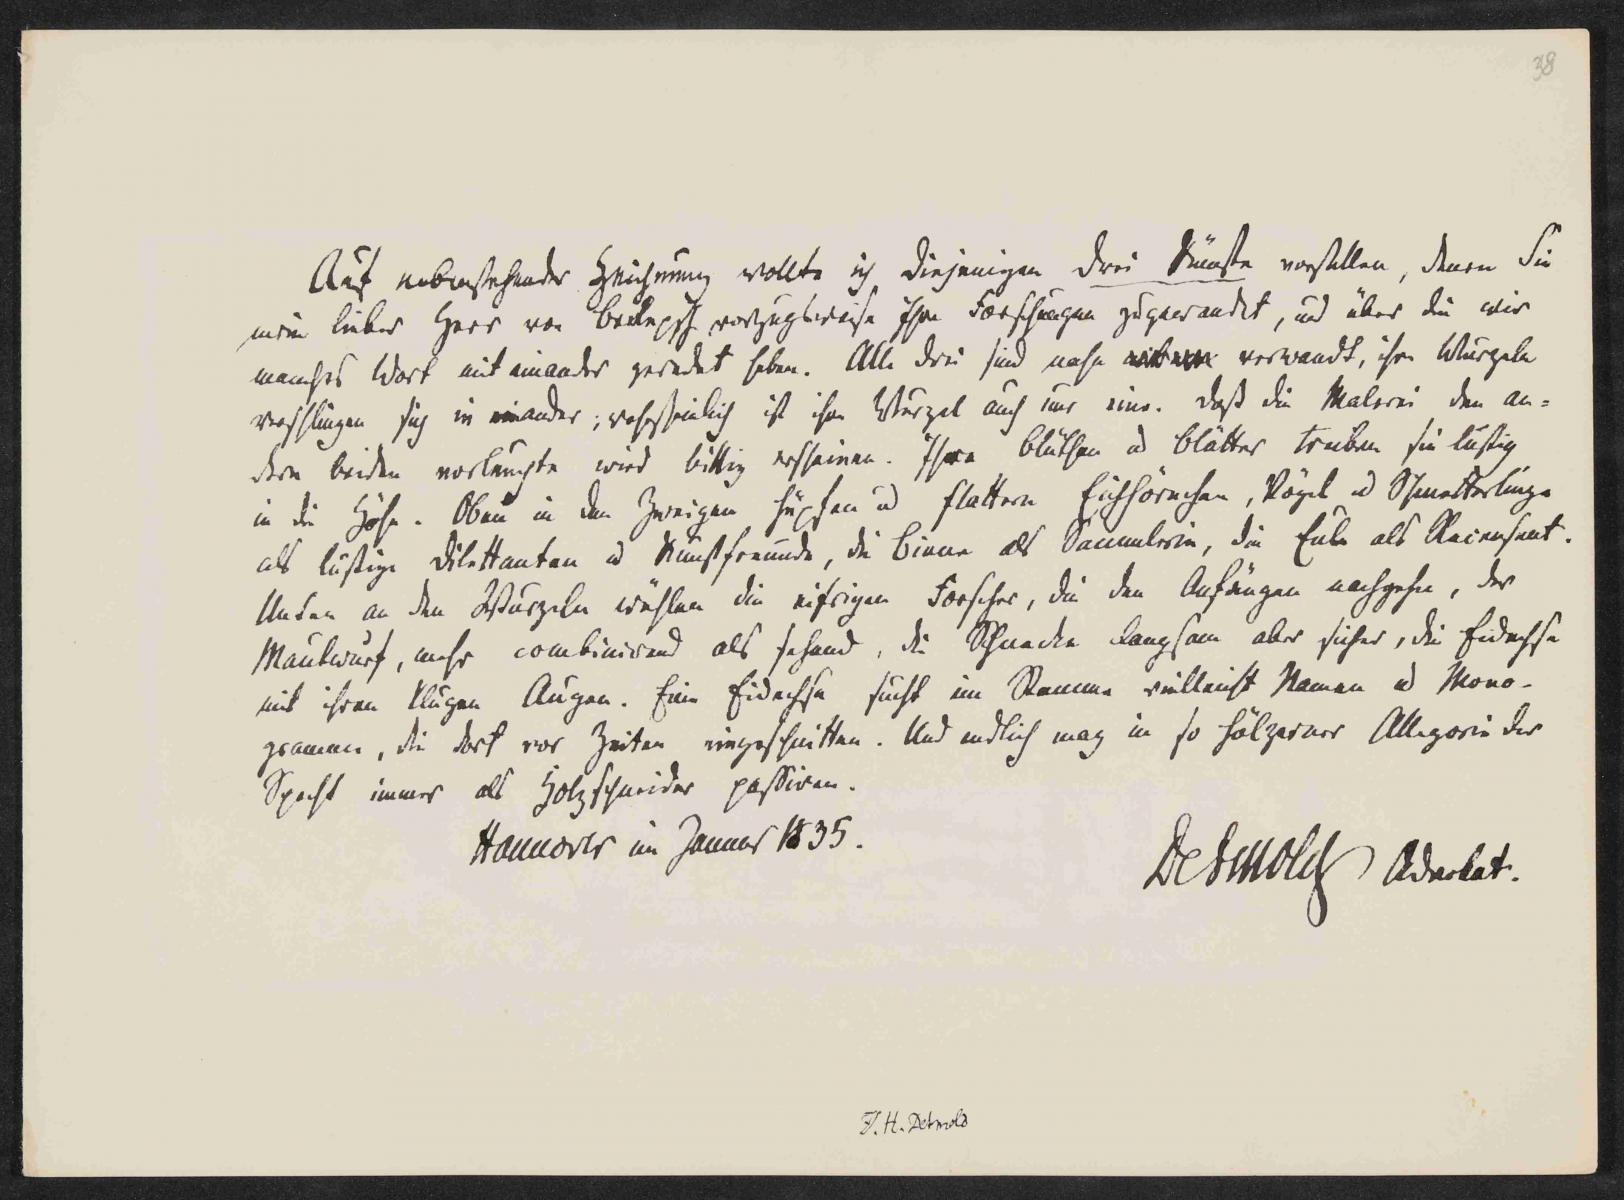 38
Auf nebenstehender Zeichnung wollte ich diejenigen drei Künste vorstellen, denen Sie
mein lieber Herr von Berlepsch vorzugsweise Ihre Forschungen zugewandt, und über die wir
manches Wort mit einander geredet haben. Alle drei sind nahe verwandt, ihre Wurzeln
verschlingen sich in einander; wahrscheinlich ist ihre Wurzel auch nur eine. Daß die Malerei den an=
dern beiden vorleuchte wird billig erscheinen. Ihre Blüthen u Blätter treiben sie lustig
in die Höhe. Oben in den Zweigen hüpfen u flattern Eichhörnchen, Vögel u Schmetterlinge
als lustige Dilettanten u Kunstfreunde, die Biene als Sammlerin, die Eule als Recensent.
Unten an den Wurzeln wühlen die eifrigen Forscher, die den Anfängen nachgehn, der
Maulwurf, mehr combinirend als sehend, die Schnecke langsam aber sicher, die Eidechse
mit ihren klugen Augen. Eine Eidechse sucht im Stamme vielleicht Namen u Mono-
gramme, die dort vor Zeiten eingeschnitten. Und endlich mag in so hölzerner Allegorie der
Specht immer als Holzschneider passiren.
Hannover im Januar 1835.
Detmold Advokat.
J. H. Detmold